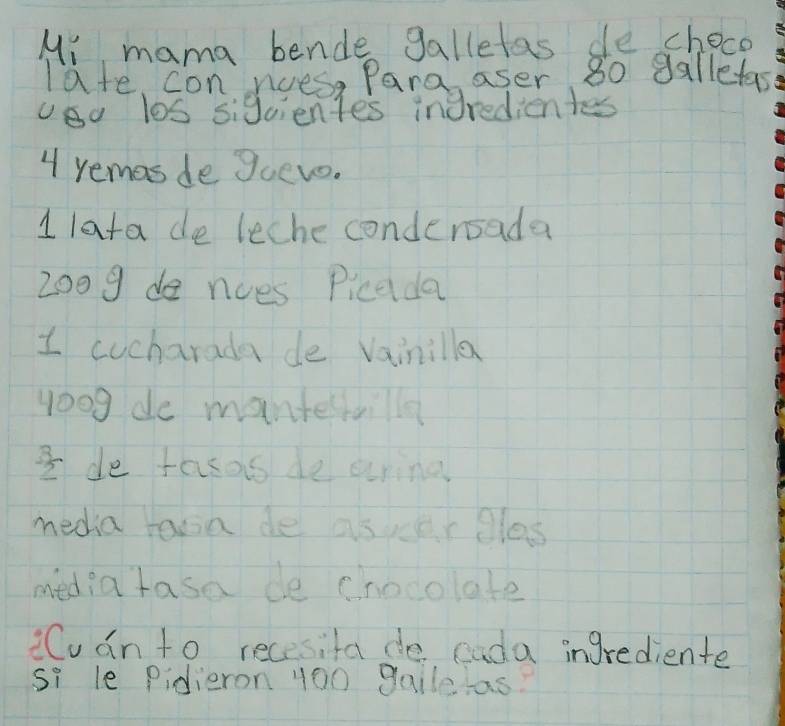 Mi mama bende galletas de choco
late, con nues, Para aser 80 galletas
uso los siguientes ingredientes
4 yemas de guevo.
1 lata de leche condensada
200g de nues Picada
1 cucharada de vainilla
400g de mantequilla
de tasas de arina
media tasa de asucar glas
media tasa de chocolate
¿Cuánto necesita de cada ingrediente
si le Pidieron 400 galletas?